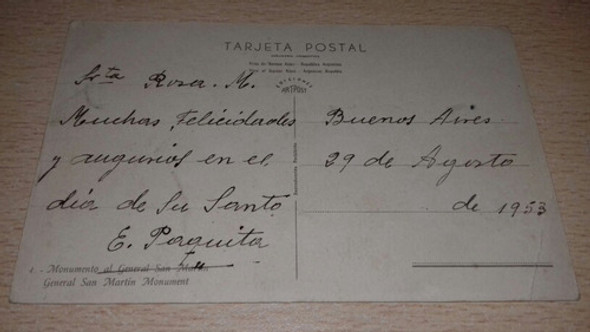 TARJETA POSTAL
Srta Rosa. M.
Muchas Felicidades
y augurios en el
día de Su Santo
E. Paquita
Buenos Aires
29 de Agosto
de 1953
1 - Monumento al General San Martín
General San Martín Monument